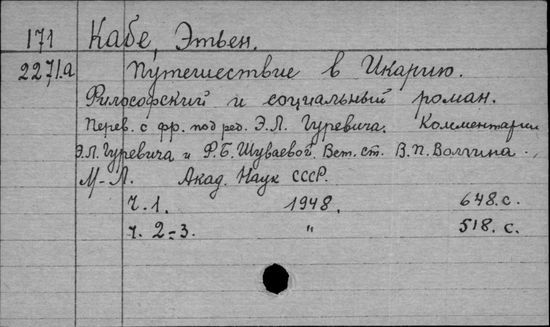 171 Кабе, Этьен.
2271.а Путешествие в Икарию.
Философский и социальный роман.
Перев. с фр. под ред. Э.Л. Гуревича. Комментарии
Э.Л. Гуревича и Ф.Б. Шуваевой. Вст. ст. В.П. Волгина.
М-Л. Акад. Наук СССР.
Ч. 1. 1948. 648. с.
ч. 2-3. " 518. с.